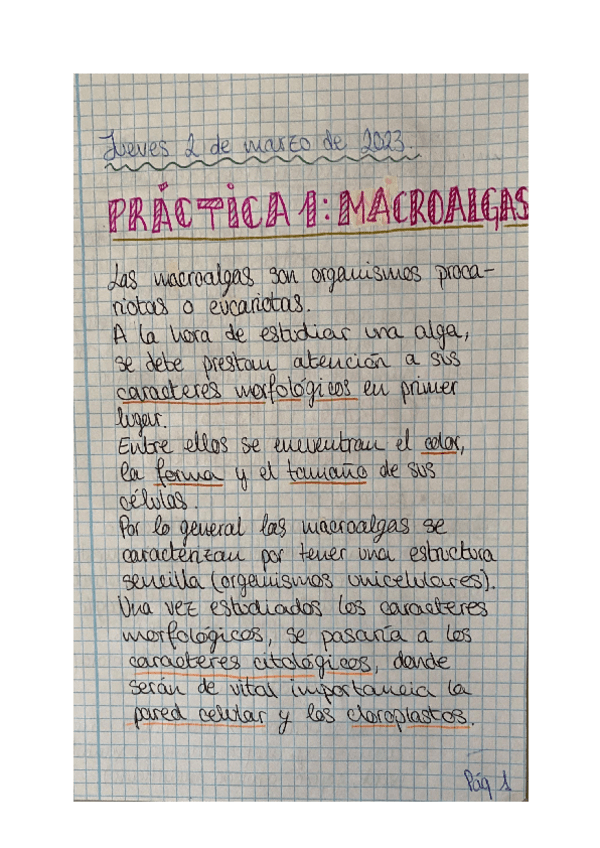 Jueves 2 de marzo de 2023.
PRÁCTICA 1: MACROALGAS
Las macroalgas son organismos proca-
riotas o eucariotas.
A la hora de estudiar una alga,
se debe prestau atención a sus
caracteres morfológicos en primer
lugar.
Entre ellos se encuentran el color,
la forma y el tamaño de sus
células.
Por lo general las macroalgas se
caracterizan por tener una estructura
sencilla (organismos unicelulares).
Una vez estudiados los caracteres
morfológicos, se pasaría a los
caracteres citológicos, donde
serán de vital importancia la
pared celular y los cloroplastos.
Pág 1